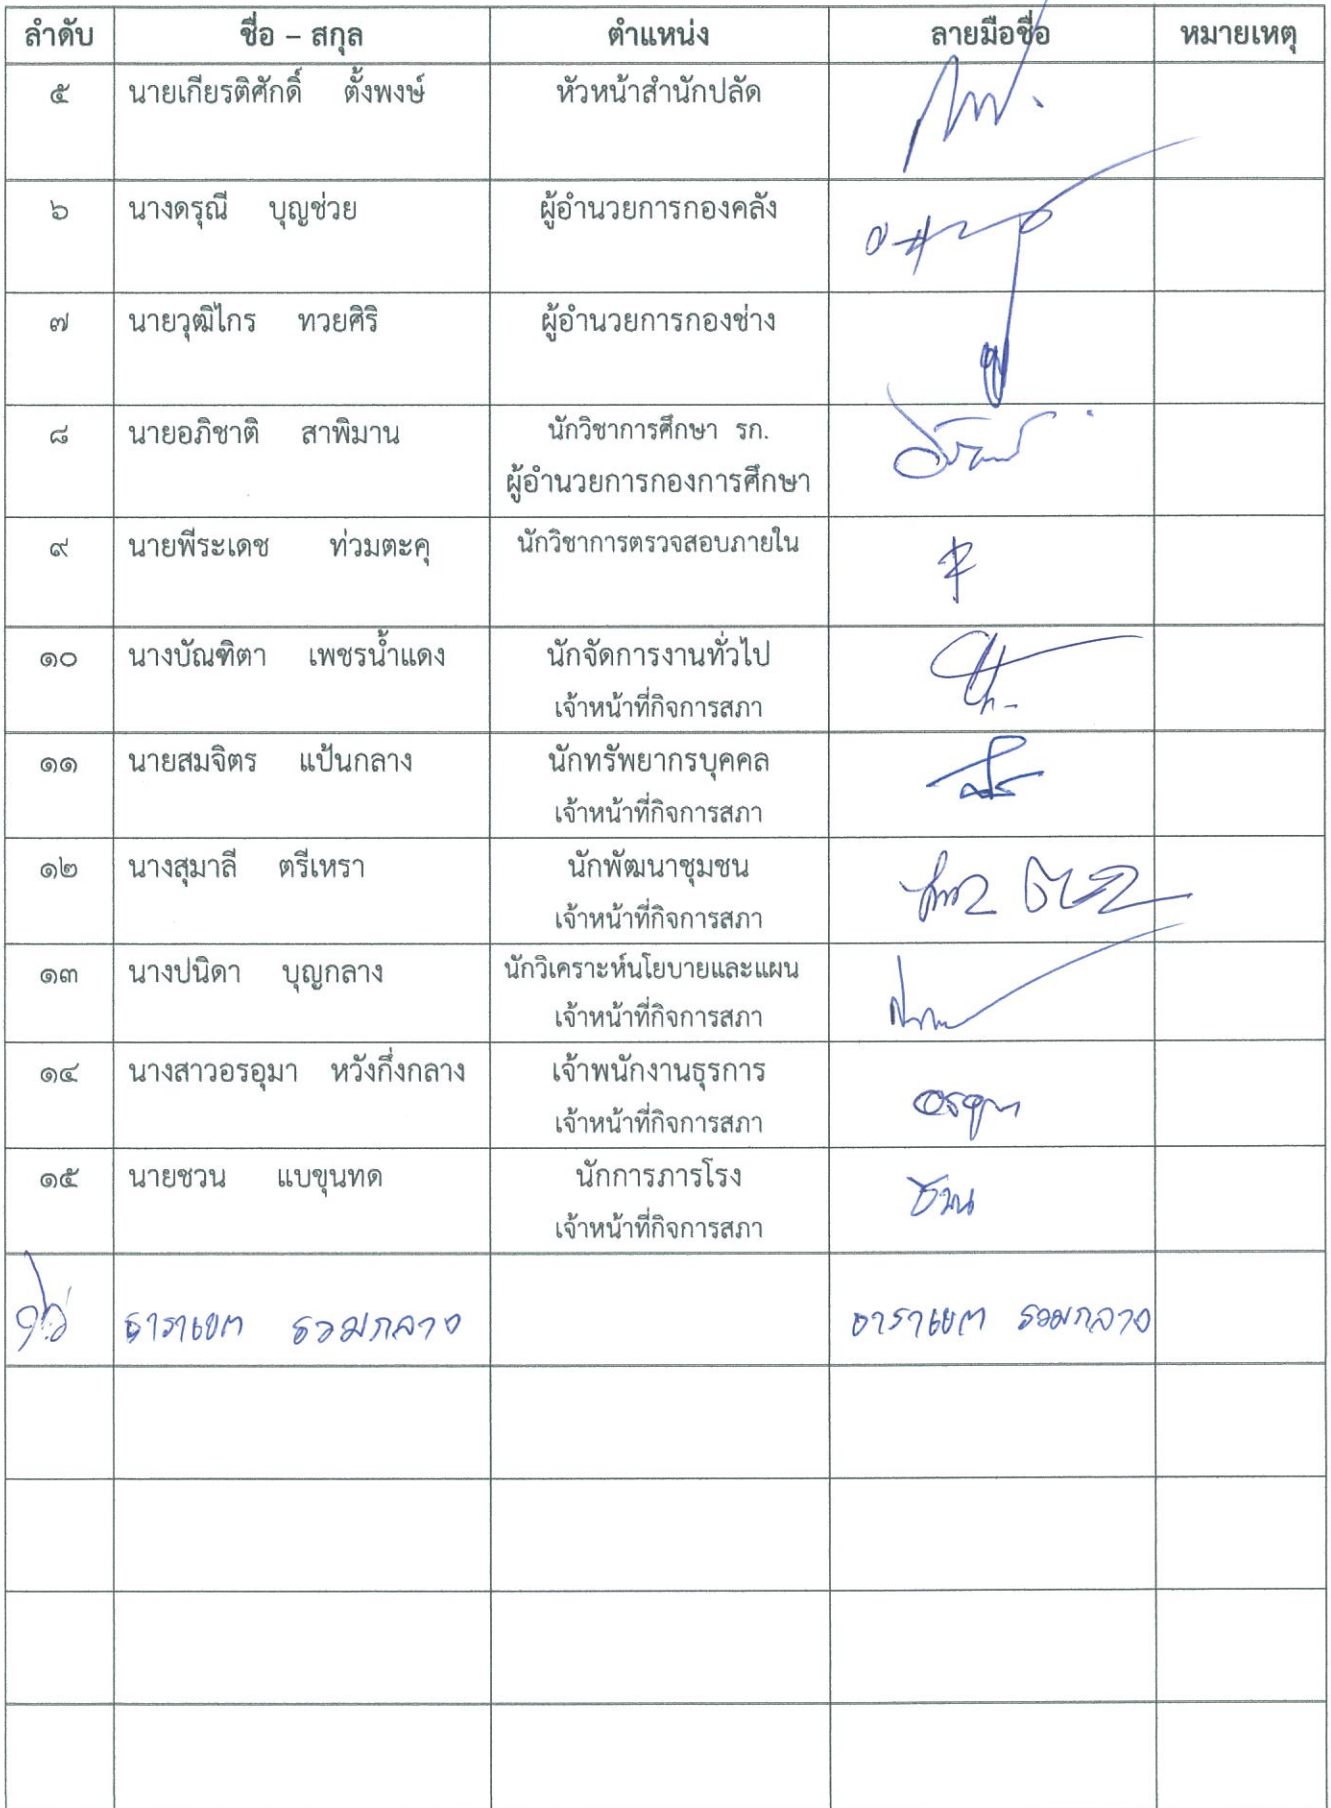 ลำดับ ชื่อ – สกุล ตำแหน่ง ลายมือชื่อ หมายเหตุ
๕ นายเกียรติศักดิ์ ตั้งพงษ์ หัวหน้าสำนักปลัด
๖ นางดรุณี บุญช่วย ผู้อำนวยการกองคลัง
๗ นายวุฒิไกร ทวยศิริ ผู้อำนวยการกองช่าง
๘ นายอภิชาติ สาพิมาน นักวิชาการศึกษา รก.
ผู้อำนวยการกองการศึกษา
๙ นายพีระเดช ท่วมตะคุ นักวิชาการตรวจสอบภายใน
๑๐ นางบัณฑิตา เพชรน้ำแดง นักจัดการงานทั่วไป
เจ้าหน้าที่กิจการสภา
๑๑ นายสมจิตร แป้นกลาง นักทรัพยากรบุคคล
เจ้าหน้าที่กิจการสภา
๑๒ นางสุมาลี ตรีเหรา นักพัฒนาชุมชน
เจ้าหน้าที่กิจการสภา
๑๓ นางปนิดา บุญกลาง นักวิเคราะห์นโยบายและแผน
เจ้าหน้าที่กิจการสภา
๑๔ นางสาวอรอุมา หวังกึ่งกลาง เจ้าพนักงานธุรการ
เจ้าหน้าที่กิจการสภา อรอุมา
๑๕ นายชวน แบขุนทด นักการภารโรง
เจ้าหน้าที่กิจการสภา ชวน
๑๖ ธาราเขต รวมกลาง ธาราเขต รวมกลาง